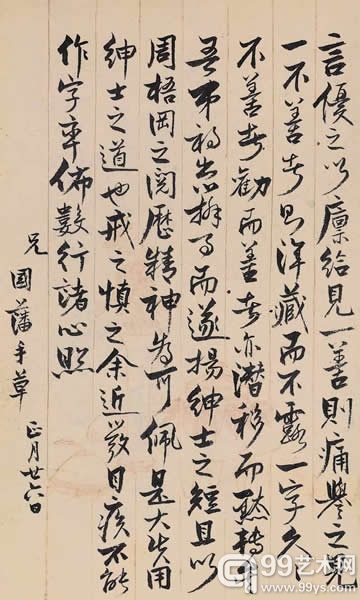 言優之以廩給見一善則痛譽之見
一不善者則渾藏而不露一字久久
不善者勸而善者亦潛移而默轉矣
吾弟初出辦事而遂揚紳士之短且以
周梧岡之閱歷精神為可佩是大失用
紳士之道也戒之慎之余近發目疾不能
作字率佈數行諸心照
兄國藩手草 正月廿六日
99艺术网
www.99ys.com